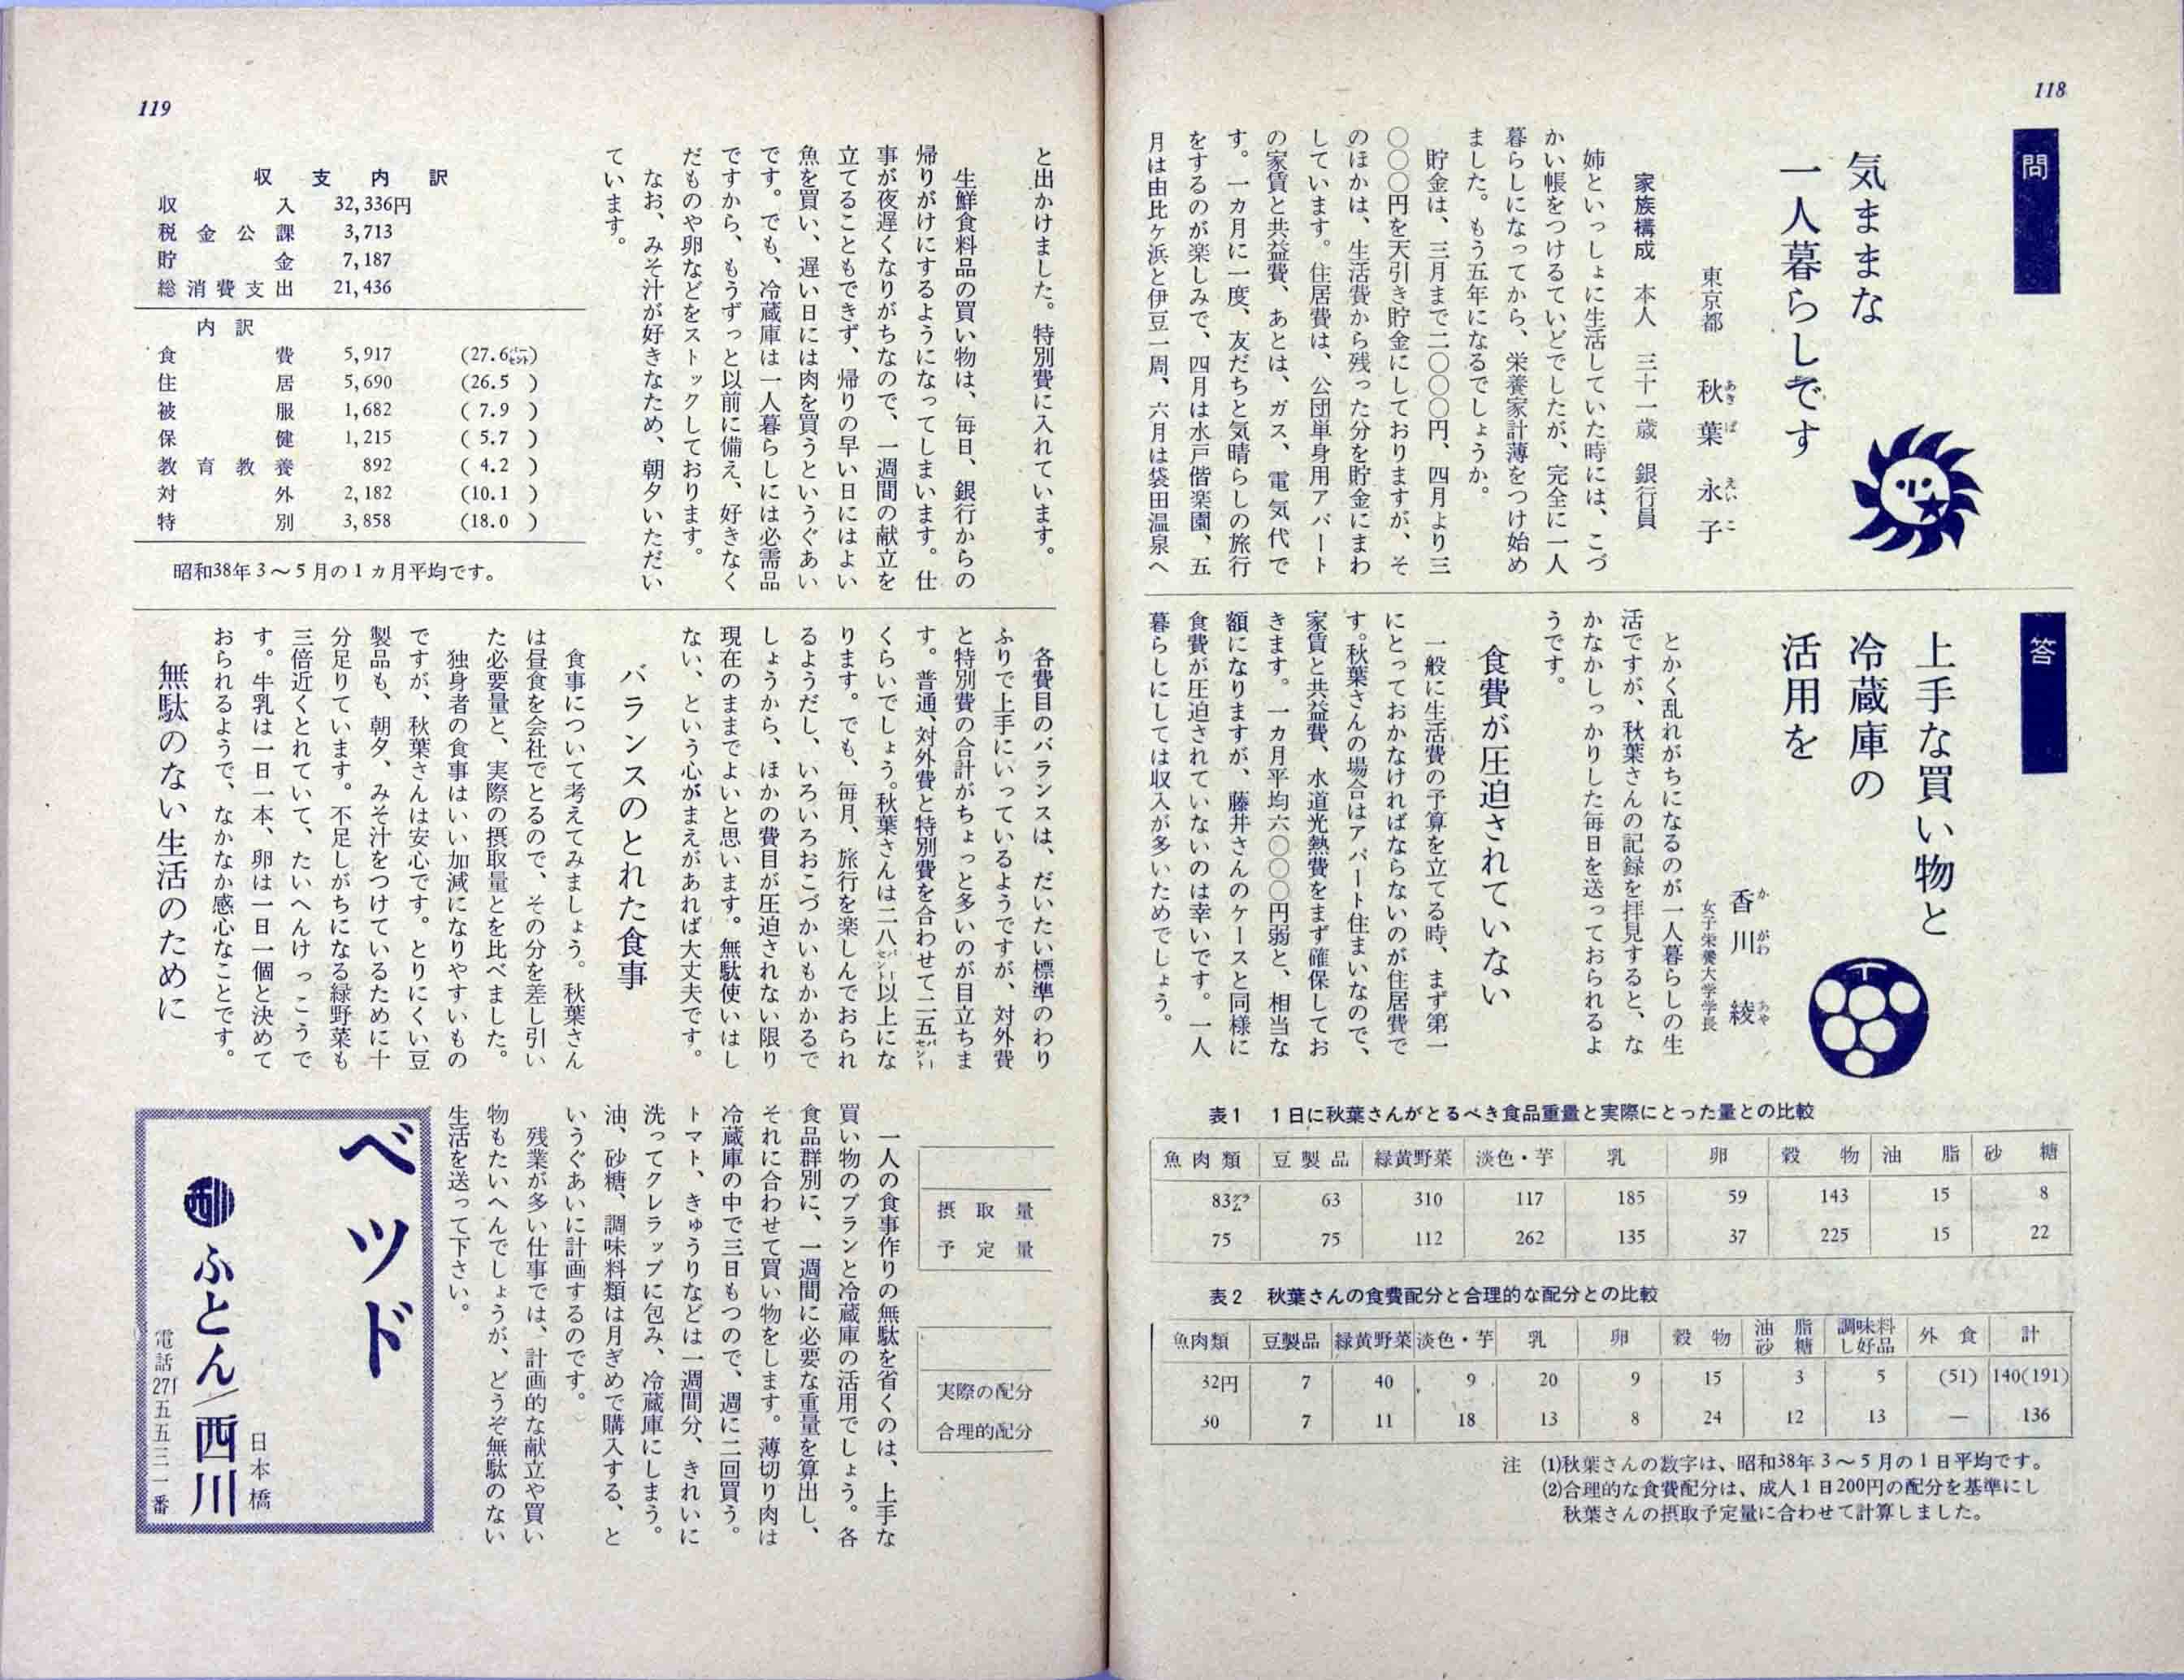 118
問
気ままな
一人暮らしです
東京都　秋葉永子
あきばえいこ
家族構成　本人　三十一歳　銀行員
姉といっしょに生活していた時には、こづ
かい帳をつけるていどでしたが、完全に一人
暮らしになってから、栄養家計薄をつけ始め
ました。もう五年になるでしょうか。
貯金は、三月まで二〇〇〇円、四月より三
〇〇〇円を天引き貯金にしておりますが、そ
のほかは、生活費から残った分を貯金にまわ
しています。住居費は、公団単身用アパート
の家賃と共益費、あとは、ガス、電気代で
す。一カ月に一度、友だちと気晴らしの旅行
をするのが楽しみで、四月は水戸偕楽園、五
月は由比ヶ浜と伊豆一周、六月は袋田温泉へ
と出かけました。特別費に入れています。
生鮮食料品の買い物は、毎日、銀行からの
帰りがけにするようになってしまいます。仕
事が夜遅くなりがちなので、一週間の献立を
立てることもできず、帰りの早い日にはよい
魚を買い、遅い日には肉を買うというぐあい
です。でも、冷蔵庫は一人暮らしには必需品
ですから、もうずっと以前に備え、好きなく
だものや卵などをストックしております。
なお、みそ汁が好きなため、朝夕いただい
ています。
119
収支内訳
収入　32,336円
税金公課　3,713
貯金　7,187
総消費支出　21,436
内訳
食費　5,917　(27.6パーセント)
住居　5,690　(26.5　)
被服　1,682　( 7.9　)
保健　1,215　( 5.7　)
教育教養　892　( 4.2　)
対外　2,182　(10.1　)
特別　3,858　(18.0　)
昭和38年3～5月の1カ月平均です。
答
上手な買い物と
冷蔵庫の
活用を
香川　綾
かがわ　あや
女子栄養大学学長
とかく乱れがちになるのが一人暮らしの生
活ですが、秋葉さんの記録を拝見すると、な
かなかしっかりした毎日を送っておられるよ
うです。
食費が圧迫されていない
一般に生活費の予算を立てる時、まず第一
にとっておかなければならないのが住居費で
す。秋葉さんの場合はアパート住まいなので、
家賃と共益費、水道光熱費をまず確保してお
きます。一カ月平均六〇〇〇円弱と、相当な
額になりますが、藤井さんのケースと同様に
食費が圧迫されていないのは幸いです。一人
暮らしにしては収入が多いためでしょう。
各費目のバランスは、だいたい標準のわり
ふりで上手にいっているようですが、対外費
と特別費の合計がちょっと多いのが目立ちま
す。普通、対外費と特別費を合わせて二五パーセント
くらいでしょう。秋葉さんは二八パーセント以上にな
ります。でも、毎月、旅行を楽しんでおられ
るようだし、いろいろおこづかいもかかるで
しょうから、ほかの費目が圧迫されない限り
現在のままでよいと思います。無駄使いはし
ない、という心がまえがあれば大丈夫です。
バランスのとれた食事
食事について考えてみましょう。秋葉さん
は昼食を会社でとるので、その分を差し引い
た必要量と、実際の摂取量とを比べました。
独身者の食事はいい加減になりやすいもの
ですが、秋葉さんは安心です。とりにくい豆
製品も、朝夕、みそ汁をつけているために十
分足りています。不足しがちになる緑野菜も
三倍近くとれていて、たいへんけっこうで
す。牛乳は一日一本、卵は一日一個と決めて
おられるようで、なかなか感心なことです。
無駄のない生活のために
表1　1日に秋葉さんがとるべき食品重量と実際にとった量との比較
魚肉類　豆製品　緑黄野菜　淡色・芋　乳　卵　穀物　油脂　砂糖
摂取量　83グラム　63　310　117　185　59　143　15　8
予定量　75　75　112　262　135　37　225　15　22
表2　秋葉さんの食費配分と合理的な配分との比較
魚肉類　豆製品　緑黄野菜　淡色・芋　乳　卵　穀物　油脂砂糖　調味料し好品　外食　計
実際の配分　32円　7　40　9　20　9　15　3　5　(51)　140(191)
合理的配分　30　7　11　18　13　8　24　12　13　―　136
注　(1)秋葉さんの数字は、昭和38年3～5月の1日平均です。
(2)合理的な食費配分は、成人1日200円の配分を基準にし
秋葉さんの摂取予定量に合わせて計算しました。
一人の食事作りの無駄を省くのは、上手な
買い物のプランと冷蔵庫の活用でしょう。各
食品群別に、一週間に必要な重量を算出し、
それに合わせて買い物をします。薄切り肉は
冷蔵庫の中で三日もつので、週に二回買う。
トマト、きゅうりなどは一週間分、きれいに
洗ってクレラップに包み、冷蔵庫にしまう。
油、砂糖、調味料類は月ぎめで購入する、と
いうぐあいに計画するのです。
残業が多い仕事では、計画的な献立や買い
物もたいへんでしょうが、どうぞ無駄のない
生活を送って下さい。
ベツド
日本橋
西川 ふとん/西川
電話271五五三一番